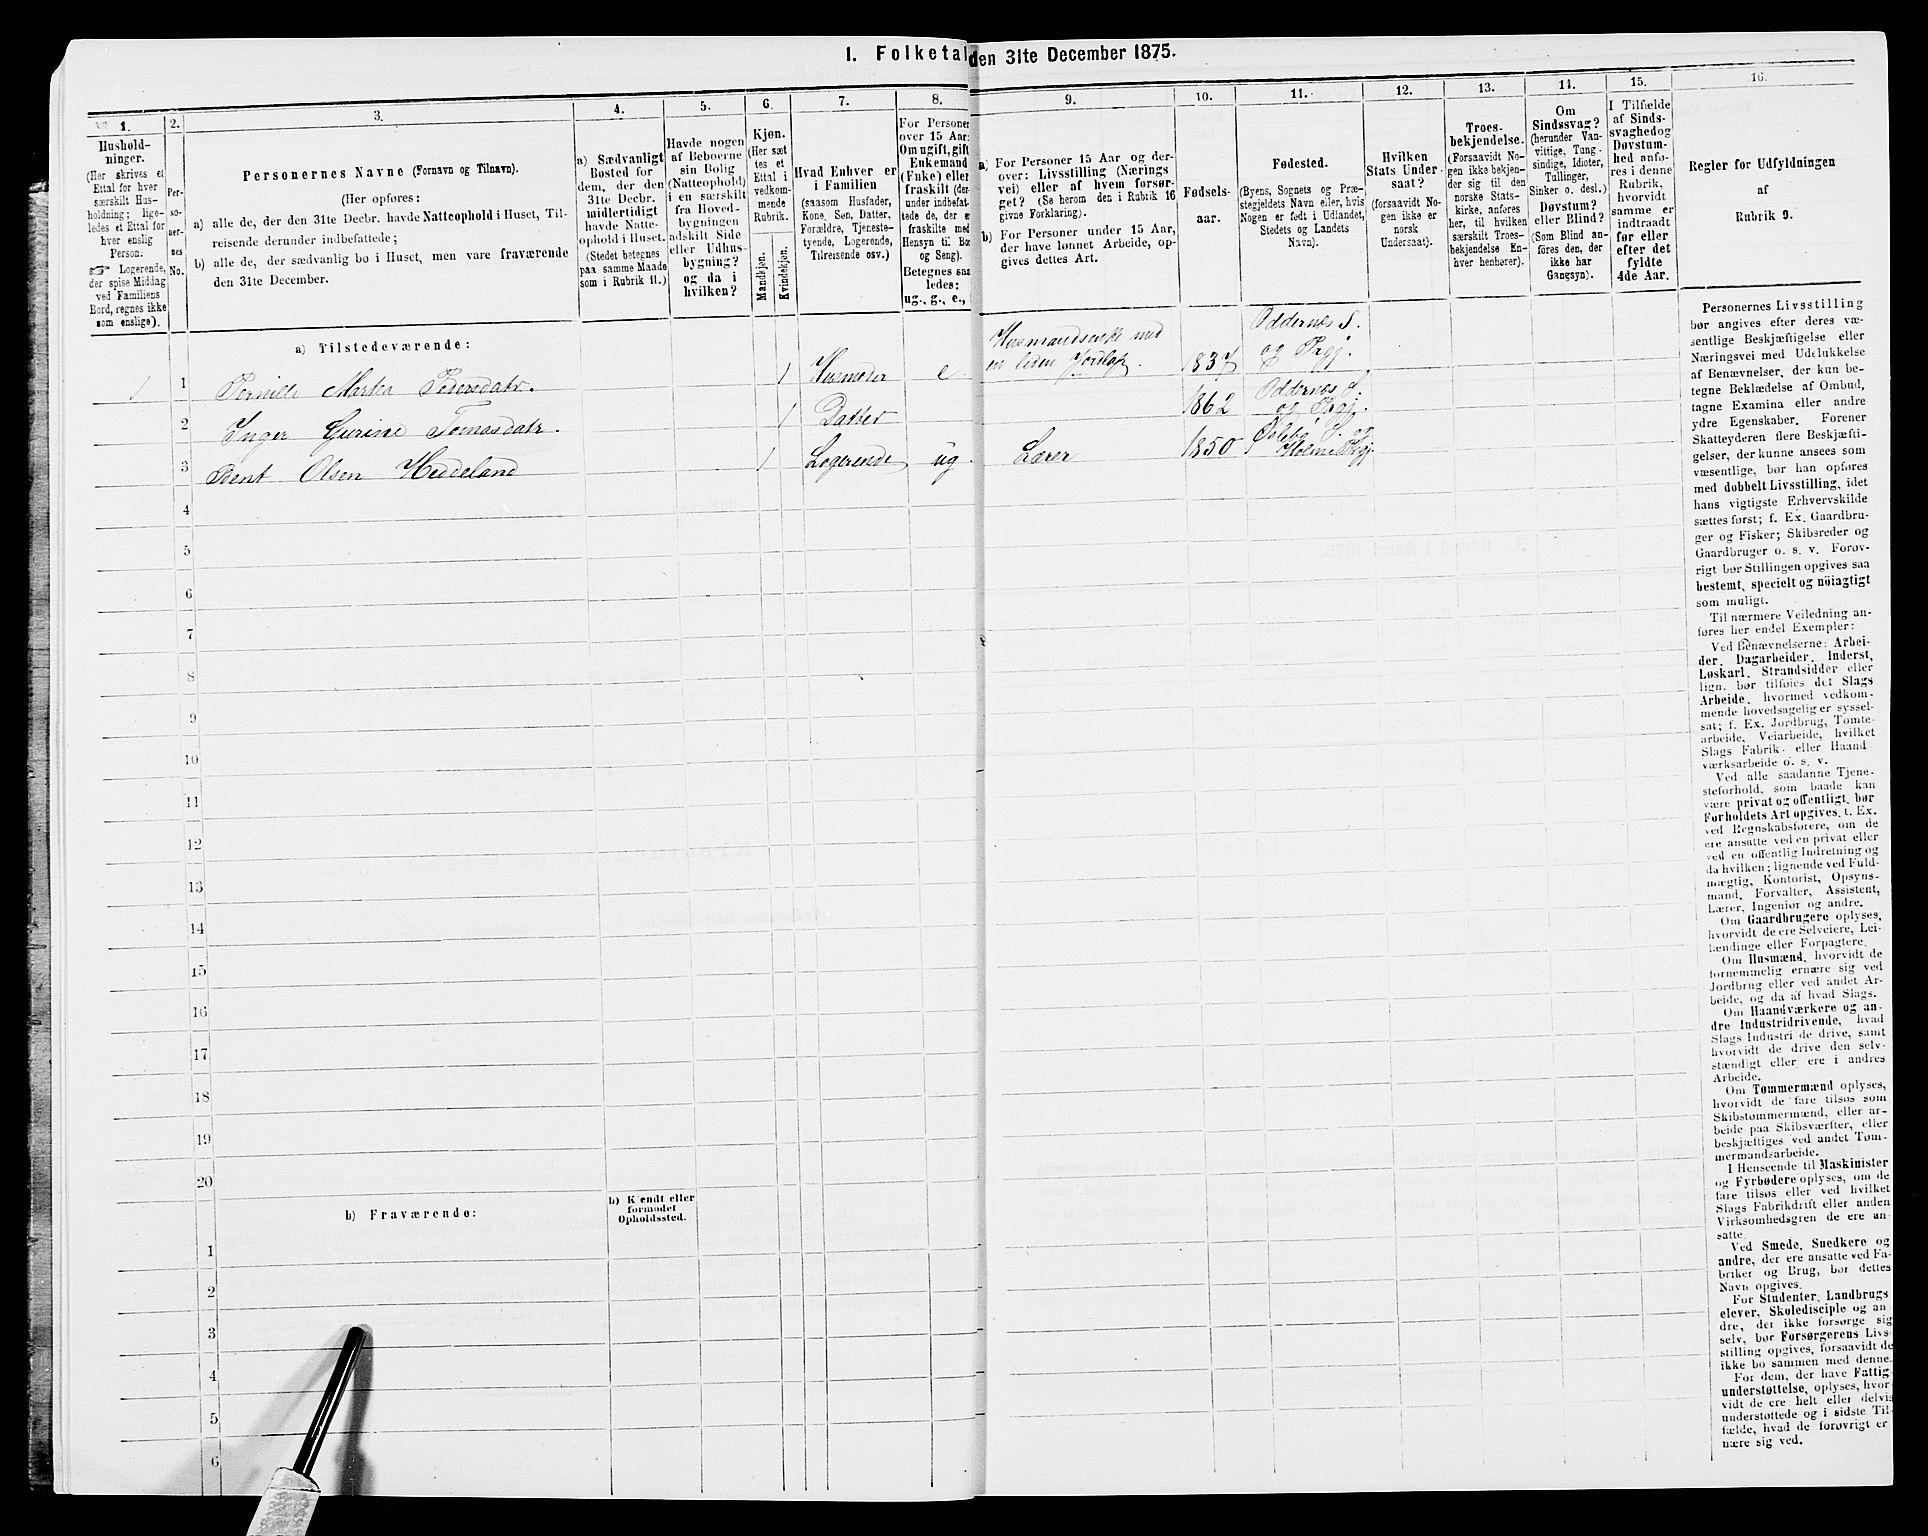 I. Folketal den 31te December 1875.
1.
Hushold-
ninger.
(Her skrives et
Ettal for hver
særskilt Hus-
holdning; lige-
ledes et Ettal for
hver enslig
Person.
☞ Logerende,
der spise Middag
ved Familiens
Bord, regnes ikke
som enslige).
2.
Per-
so-
ner-
nes
No.
3.
Personernes Navne (Fornavn og Tilnavn).
(Her opføres:
a) alle de, der den 31te Decbr. havde Natteophold i Huset, Til-
reisende derunder indbefattede;
b) alle de, der sædvanlig bo i Huset, men vare fraværende
den 31te December.
4.
a) Sædvanligt
Bosted for
dem, der den
31te Decbr.
midlertidigt
havde Natte-
ophold i Huset.
(Stedet betegnes
paa samme Maade
som i Rubrik 11.)
5.
Havde nogen
af Beboerne
sin Bolig
(Natteophold)
i en særskilt
fra Hoved-
bygningen
adskilt Side
eller Udhus-
bygning?
og da i
hvilken?
6.
Kjøn.
(Her sæt
tes et
Ettal i
vedkom-
mende
Rubrik.
Mandkjøn.
Kvindekjøn.
7.
Hvad Enhver er
i Familien
(saasom Husfader,
Kone, Søn, Datter,
Forældre, Tjeneste-
tyende, Logerende,
Tilreisende osv.)
8.
For Personer
over 15 Aar:
Om ugift, gift,
Enkemand
(Enke) eller
fraskilt (der-
under indbefat-
tede de, der e
fraskilte med
Hensyn til Bo
og Seng).
Betegnes saa
ledes:
ug., g., e.,
9.
a) For Personer 15 Aar og der-
over: Livsstilling (Nærings
vei) eller af hvem forsør-
get? (Se herom den i Rubrik 16
givne Forklaring).
b) For Personer under 15 Aar,
der have lønnet Arbeide, op-
gives dettes Art.
10.
Fødsels-
aar.
11.
Fødested.
(Byens, Sognets og Præ-
stegjeldets Navn eller, hvis
Nogen er født i Udlandet,
Stedets og Landets
Navn).
12.
Hvilken
Stats Under-
saat?
(forsaavidt No-
gen ikke er
norsk
Undersaat).
13.
Troes-
bekjendelse.
(Forsaavidt No-
gen ikke bekjen-
der sig til den
norske Stats-
kirke, anføres
her, til hvilken
særskilt Troes-
bekjendelse En-
hver henhører).
14.
Om
Sindssvag?
(herunder Van-
vittige, Tung-
sindige, Idioter,
Tullinger,
Sinker o. desl.)
Døvstum?
eller Blind?
(Som Blind an-
føres den, der
ikke har
Gangsyn).
15.
I Tilfælde
af Sinds-
svaghed og
Døvstum-
hed anfø-
res i denne
Rubrik,
hvorvidt
samme er
indtraadt
før eller
efter det
fyldte
4de Aar.
16.
Regler for Udfyldningen
af
Rubrik 9.
a) Tilstedeværende:
1 1 Pernille Marta Pedersdatr. 1 Husmoder e Husmandsenke med en liden Jordlap. 1837 Oddernes S. og Prgj.
2 Inger Gurine Tomasdatr. 1 Datter 1862 Oddernes S. og Prgj.
3 Bent Olsen Heddeland 1 Logerende ug Lærer 1850 Øslebø S. og Holme Prgj.
4
5
6
7
8
9
10
11
12
13
14
15
16
17
18
19
20
b) Fraværende:
b) Kjendt eller
formodet
Opholdssted.
1
2
3
4
5
6
Personernes Livsstilling
bør angives efter deres væ-
sentlige Beskjæftigelse eller
Næringsvei med Udelukkelse
af Benævnelser, der kun be-
tegne Beklædelse af Ombud,
tagne Examina eller andre
ydre Egenskaber. Forener
Skatteyderen flere Beskjæfti-
gelser, der kunne ansees som
væsentlige, bør han opføres
med dobbelt Livsstilling, idet
hans vigtigste Erhvervskilde
sættes først; f. Ex. Gaardbru-
ger og Fisker; Skibsreder og
Gaardbruger o. s. v. Forøv-
rigt bør Stillingen opgives saa
bestemt, specielt og nöiagtigt
som muligt.
Til nærmere Veiledning an-
føres her endel Exempler:
Ved Benævnelserne: Arbei-
der, Dagarbeider, Inderst,
Løskarl, Strandsidder eller
lign. bør tilføies det Slags
Arbeide, hvormed vedkom-
mende hovedsagelig er syssel-
sat; f. Ex. Jordbrug, Tomte-
arbeide, Veiarbeide, hvilket
Slags Fabrik- eller Haand
værksarbeide o. s. v.
Ved alle saadanne Tjene-
steforhold, som baade kan
være privat og offentligt, bør
Forholdets Art opgives, f. Ex.
ved Regnskabsførere, om de
ere ansatte ved en privat eller
ved en offentlig Indretning og
da hvilken; lignende ved Fuld-
mægtig, Kontorist, Opsyns-
mand, Forvalter, Assistent,
Lærer, Ingeniør og andre.
Om Gaardbrugere oplyses,
hvorvidt de ere Selveiere, Lei-
lændinge eller Forpagtere.
Om Husmænd, hvorvidt de
fornemmelig ernære sig ved
Jordbrug eller ved andet Ar-
beide, og da af hvad Slags.
Om Haandværkere og an-
dre Industridrivende, hvad
Slags Industri de drive, samt
hvorvidt de drive den selv-
stændigt eller ere i andres
Arbeide.
Om Tømmermænd oplyses,
hvorvidt de fare tilsøs som
Skibstømmermænd, eller ar-
beide paa Skibsværfter, eller
beskjæftiges ved andet Tøm-
mermandsarbeide.
I Henseende til Maskinister
og Fyrbødere oplyses, om de
fare tilsøs eller ved hvilket
Slags Fabrikdrift eller anden
Virksomhedsgren de ere an-
satte.
Ved Smede, Snedkere og
andre, der ere ansatte ved Fa-
briker og Brug, bør dettes
Navn opgives.
For Studenter, Landbrugs
elever, Skoledisciple og an-
dre, der ikke forsørge sig
selv, bør Forsørgerens Livs-
stilling opgives, forsaavidt de
ikke bo sammen med denne.
For dem, der have Fattig-
understøttelse, oplyses, hvor-
vidt de ere helt eller delvis
understøttede og i sidste Til-
fælde, hvad de forøvrigt er
nære sig ved.